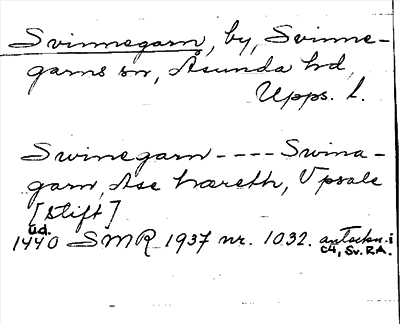 Svinnegarn, by, Svinne-
garns sn, Åsunda hd,
Upps. l.
Swinegarn - - - - Swina-
garn, Ase hæreth, Vpsale
[stift]
ud.
1440 SMR 1937 nr. 1032. anteckn. i
C4, Sv. RA.